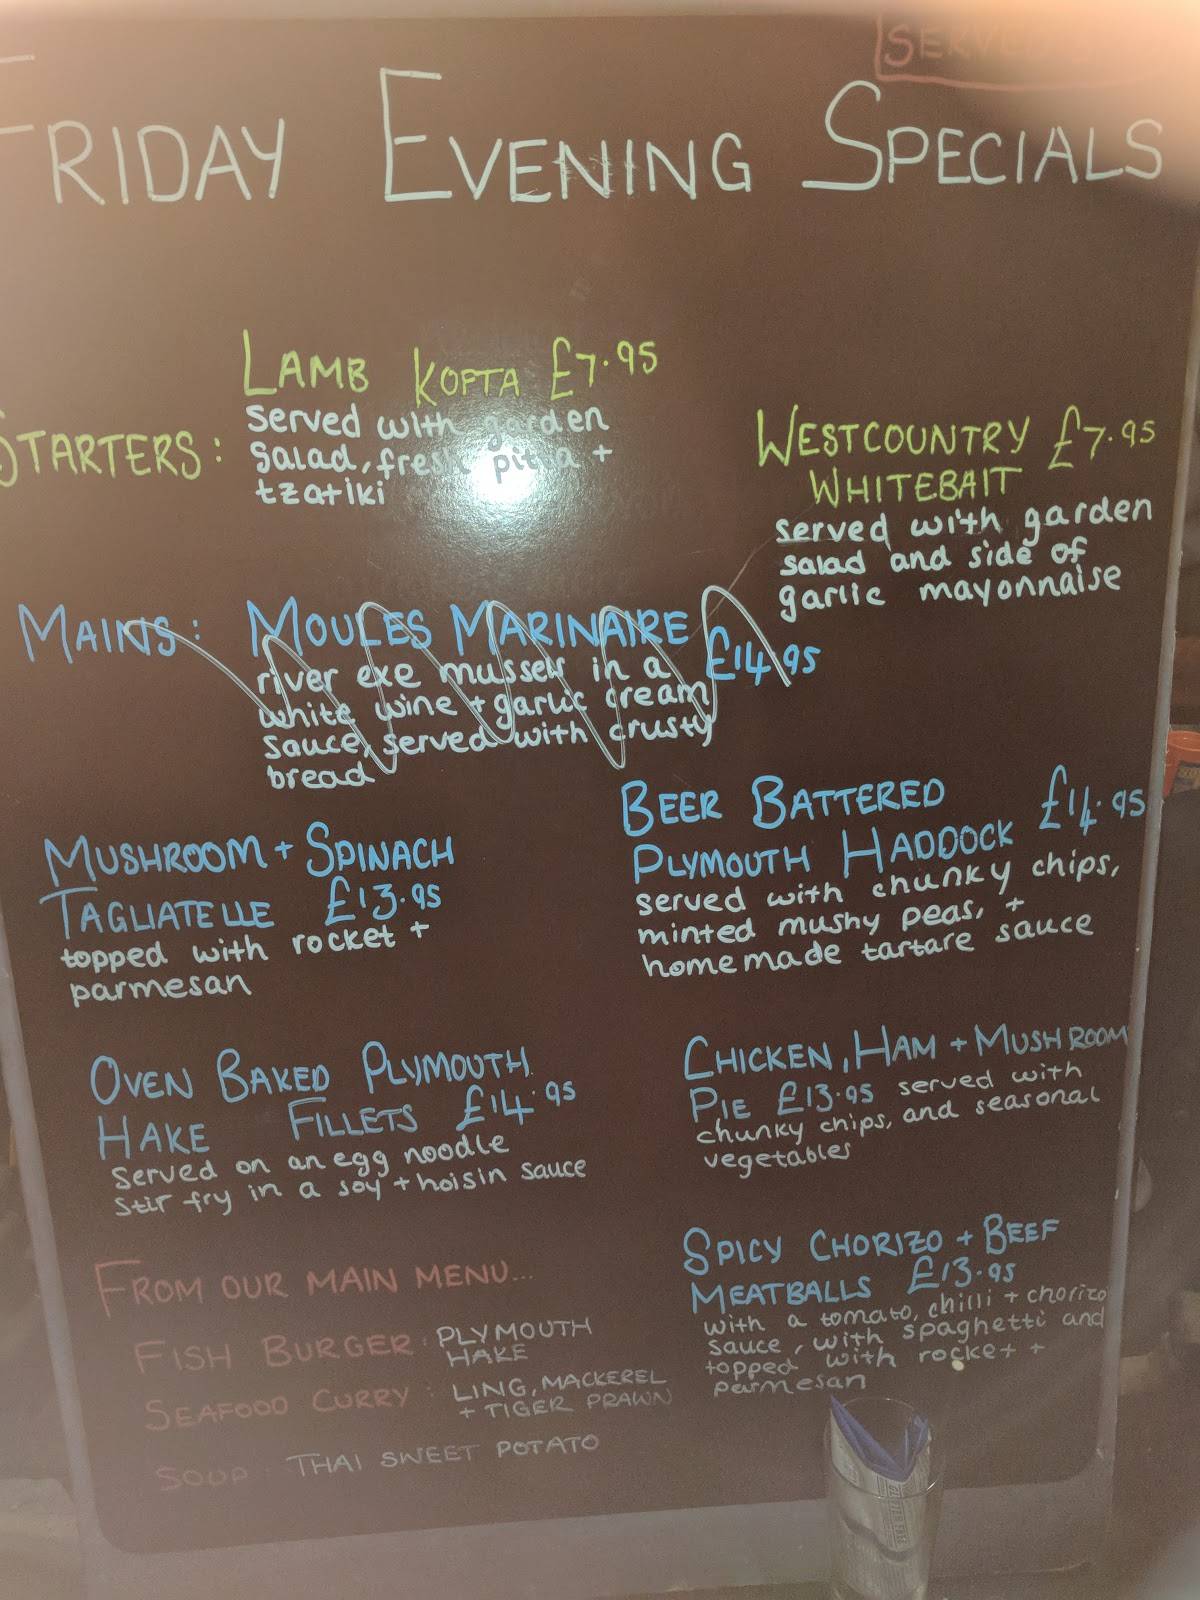 FRIDAY EVENING SPECIALS
STARTERS:
LAMB KOFTA £7.95
served with garden
salad, fresh pitta +
tzatiki
WESTCOUNTRY £7.95
WHITEBAIT
served with garden
salad and side of
garlic mayonnaise
MAINS: MOULES MARINAIRE £14.95
river exe mussels in a
white wine + garlic cream
sauce, served with crusty
bread
BEER BATTERED
PLYMOUTH HADDOCK £14.95
served with chunky chips,
minted mushy peas, +
homemade tartare sauce
MUSHROOM + SPINACH
TAGLIATELLE £13.95
topped with rocket +
parmesan
OVEN BAKED PLYMOUTH
HAKE FILLETS £14.95
served on an egg noodle
stir fry in a soy + hoisin sauce
CHICKEN, HAM + MUSHROOM
PIE £13.95 served with
chunky chips, and seasonal
vegetables
SPICY CHORIZO + BEEF
MEATBALLS £13.95
with a tomato, chilli + chorizo
sauce, with spaghetti and
topped with rocket +
parmesan
FROM OUR MAIN MENU...
FISH BURGER: PLYMOUTH
HAKE
SEAFOOD CURRY: LING, MACKEREL
+ TIGER PRAWN
SOUP: THAI SWEET POTATO